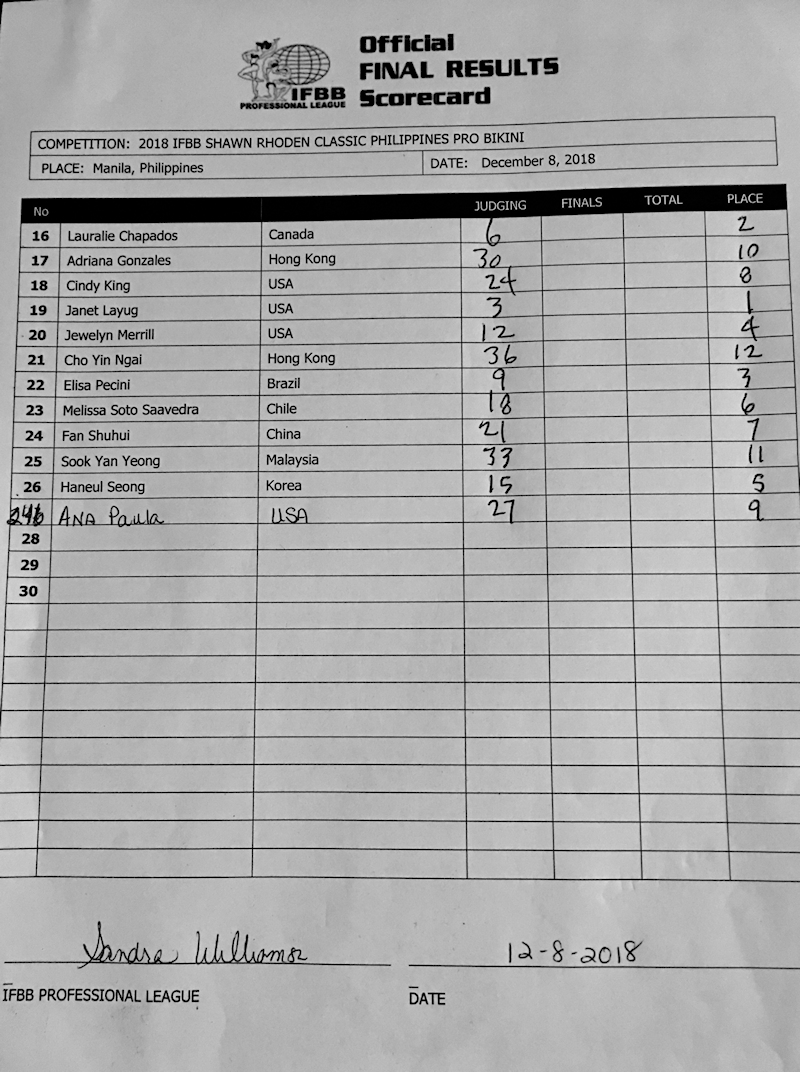 Official
FINAL RESULTS
Scorecard
IFBB
PROFESSIONAL LEAGUE
COMPETITION: 2018 IFBB SHAWN RHODEN CLASSIC PHILIPPINES PRO BIKINI
PLACE: Manila, Philippines DATE: December 8, 2018
No JUDGING FINALS TOTAL PLACE
16 Lauralie Chapados Canada 6 2
17 Adriana Gonzales Hong Kong 30 10
18 Cindy King USA 24 8
19 Janet Layug USA 3 1
20 Jewelyn Merrill USA 12 4
21 Cho Yin Ngai Hong Kong 36 12
22 Elisa Pecini Brazil 9 3
23 Melissa Soto Saavedra Chile 18 6
24 Fan Shuhui China 21 7
25 Sook Yan Yeong Malaysia 33 11
26 Haneul Seong Korea 15 5
ANA Paula USA 27 9
28
29
30
Sandra Williams 12-8-2018
IFBB PROFESSIONAL LEAGUE DATE